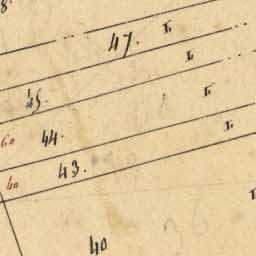 8.
47. I.
I.
45. I.
60 44. I.
40 43. I.
40